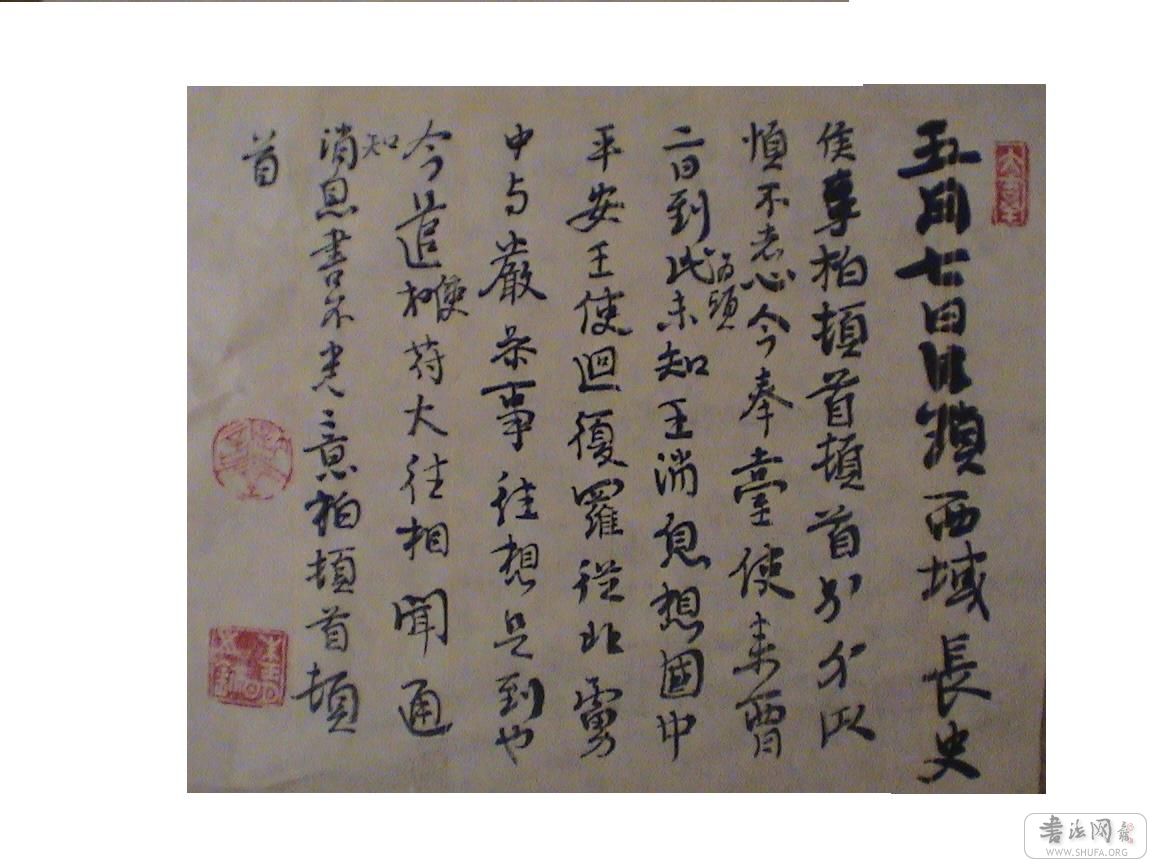 五月七日海頭西域長史
侯李柏頓首頓首別以
恒不去心今奉臺使來西月
海頭
二日到此未知王消息想國中
平安王使迴復羅從北虜
中与嚴參事往想是到也
今遣使符大往相聞通
知
消息書不盡意李柏頓首頓
首
書法网
WWW.SHUFA.ORG